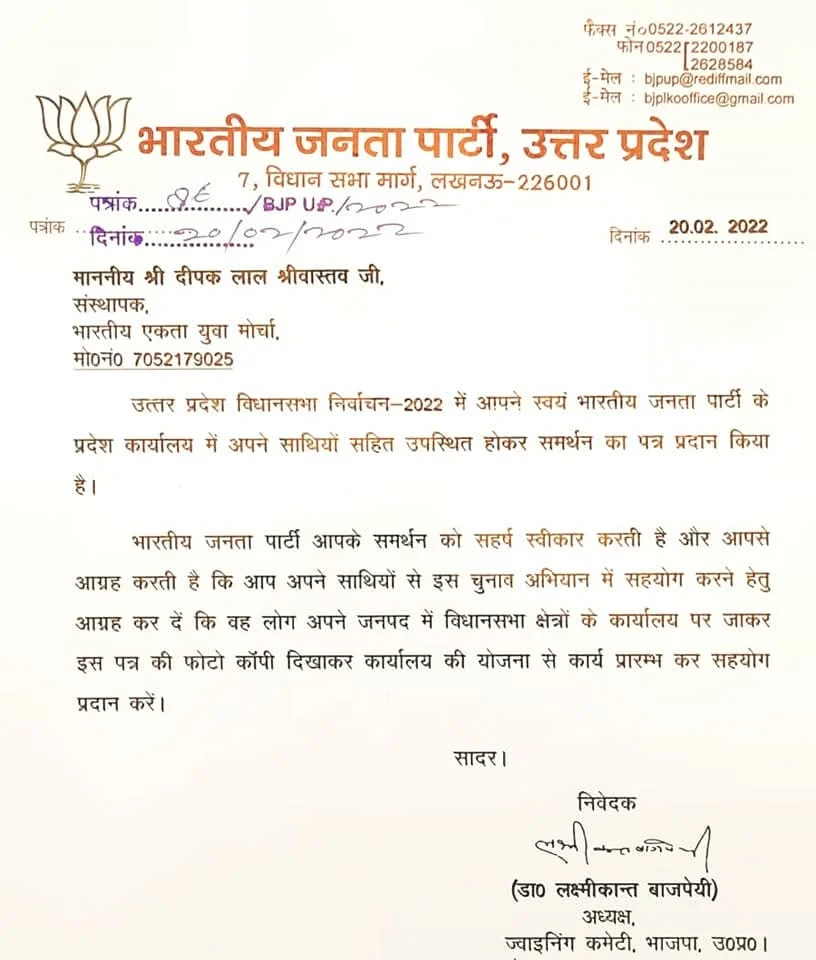 फैक्स नं०0522-2612437
फोन0522 2200187
2628584
ई-मेल : bjpup@rediffmail.com
ई-मेल : bjplkooffice@gmail.com
भारतीय जनता पार्टी, उत्तर प्रदेश
7, विधान सभा मार्ग, लखनऊ-226001
पत्रांक............/BJP U.P./2022
पत्रांक
दिनांक 20/02/2022
दिनांक 20.02. 2022
माननीय श्री दीपक लाल श्रीवास्तव जी,
संस्थापक,
भारतीय एकता युवा मोर्चा,
मो0नं0 7052179025
उत्तर प्रदेश विधानसभा निर्वाचन-2022 में आपने स्वयं भारतीय जनता पार्टी के
प्रदेश कार्यालय में अपने साथियों सहित उपस्थित होकर समर्थन का पत्र प्रदान किया
है।
भारतीय जनता पार्टी आपके समर्थन को सहर्ष स्वीकार करती है और आपसे
आग्रह करती है कि आप अपने साथियों से इस चुनाव अभियान में सहयोग करने हेतु
आग्रह कर दें कि वह लोग अपने जनपद में विधानसभा क्षेत्रों के कार्यालय पर जाकर
इस पत्र की फोटो कॉपी दिखाकर कार्यालय की योजना से कार्य प्रारम्भ कर सहयोग
प्रदान करें।
सादर।
निवेदक
लक्ष्मीकान्त बाजपेयी
(डा0 लक्ष्मीकान्त बाजपेयी)
अध्यक्ष,
ज्वाइनिंग कमेटी, भाजपा, उ0प्र0।